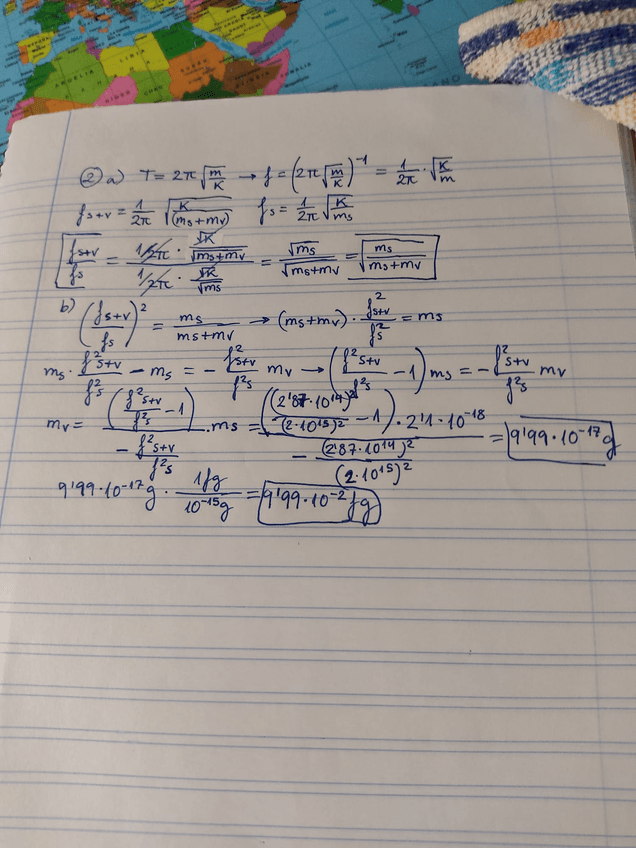 ANGELIA
LIBIA
SOMALIA
② a) T = 2π √(m/K) → f = (2π √(m/K))⁻¹ = 1/2π · √(K/m)
f s+v = 1/2π √(K/(ms+mv)) fs = 1/2π √(K/ms)
f s+v / fs = (1/2π · √K/√(ms+mv)) / (1/2π · √K/√ms) = √ms / √(ms+mv) = √(ms/(ms+mv))
b) (f s+v / fs)² = ms/(ms+mv) → (ms+mv) · f² s+v / f² s = ms
ms · f² s+v / f² s - ms = - f² s+v / f² s mv → (f² s+v / f² s - 1) ms = - f² s+v / f² s mv
mv = (f² s+v / f² s - 1) / (- f² s+v / f² s) · ms = ((2'87·10¹⁴)² / (2·10¹⁵)² - 1) · 2'1·10⁻¹⁸ / (- (2'87·10¹⁴)² / (2·10¹⁵)²) = 9'99·10⁻¹⁷ g
9'99·10⁻¹⁷ g · 1fg / 10⁻¹⁵ g = 9'99·10⁻² fg